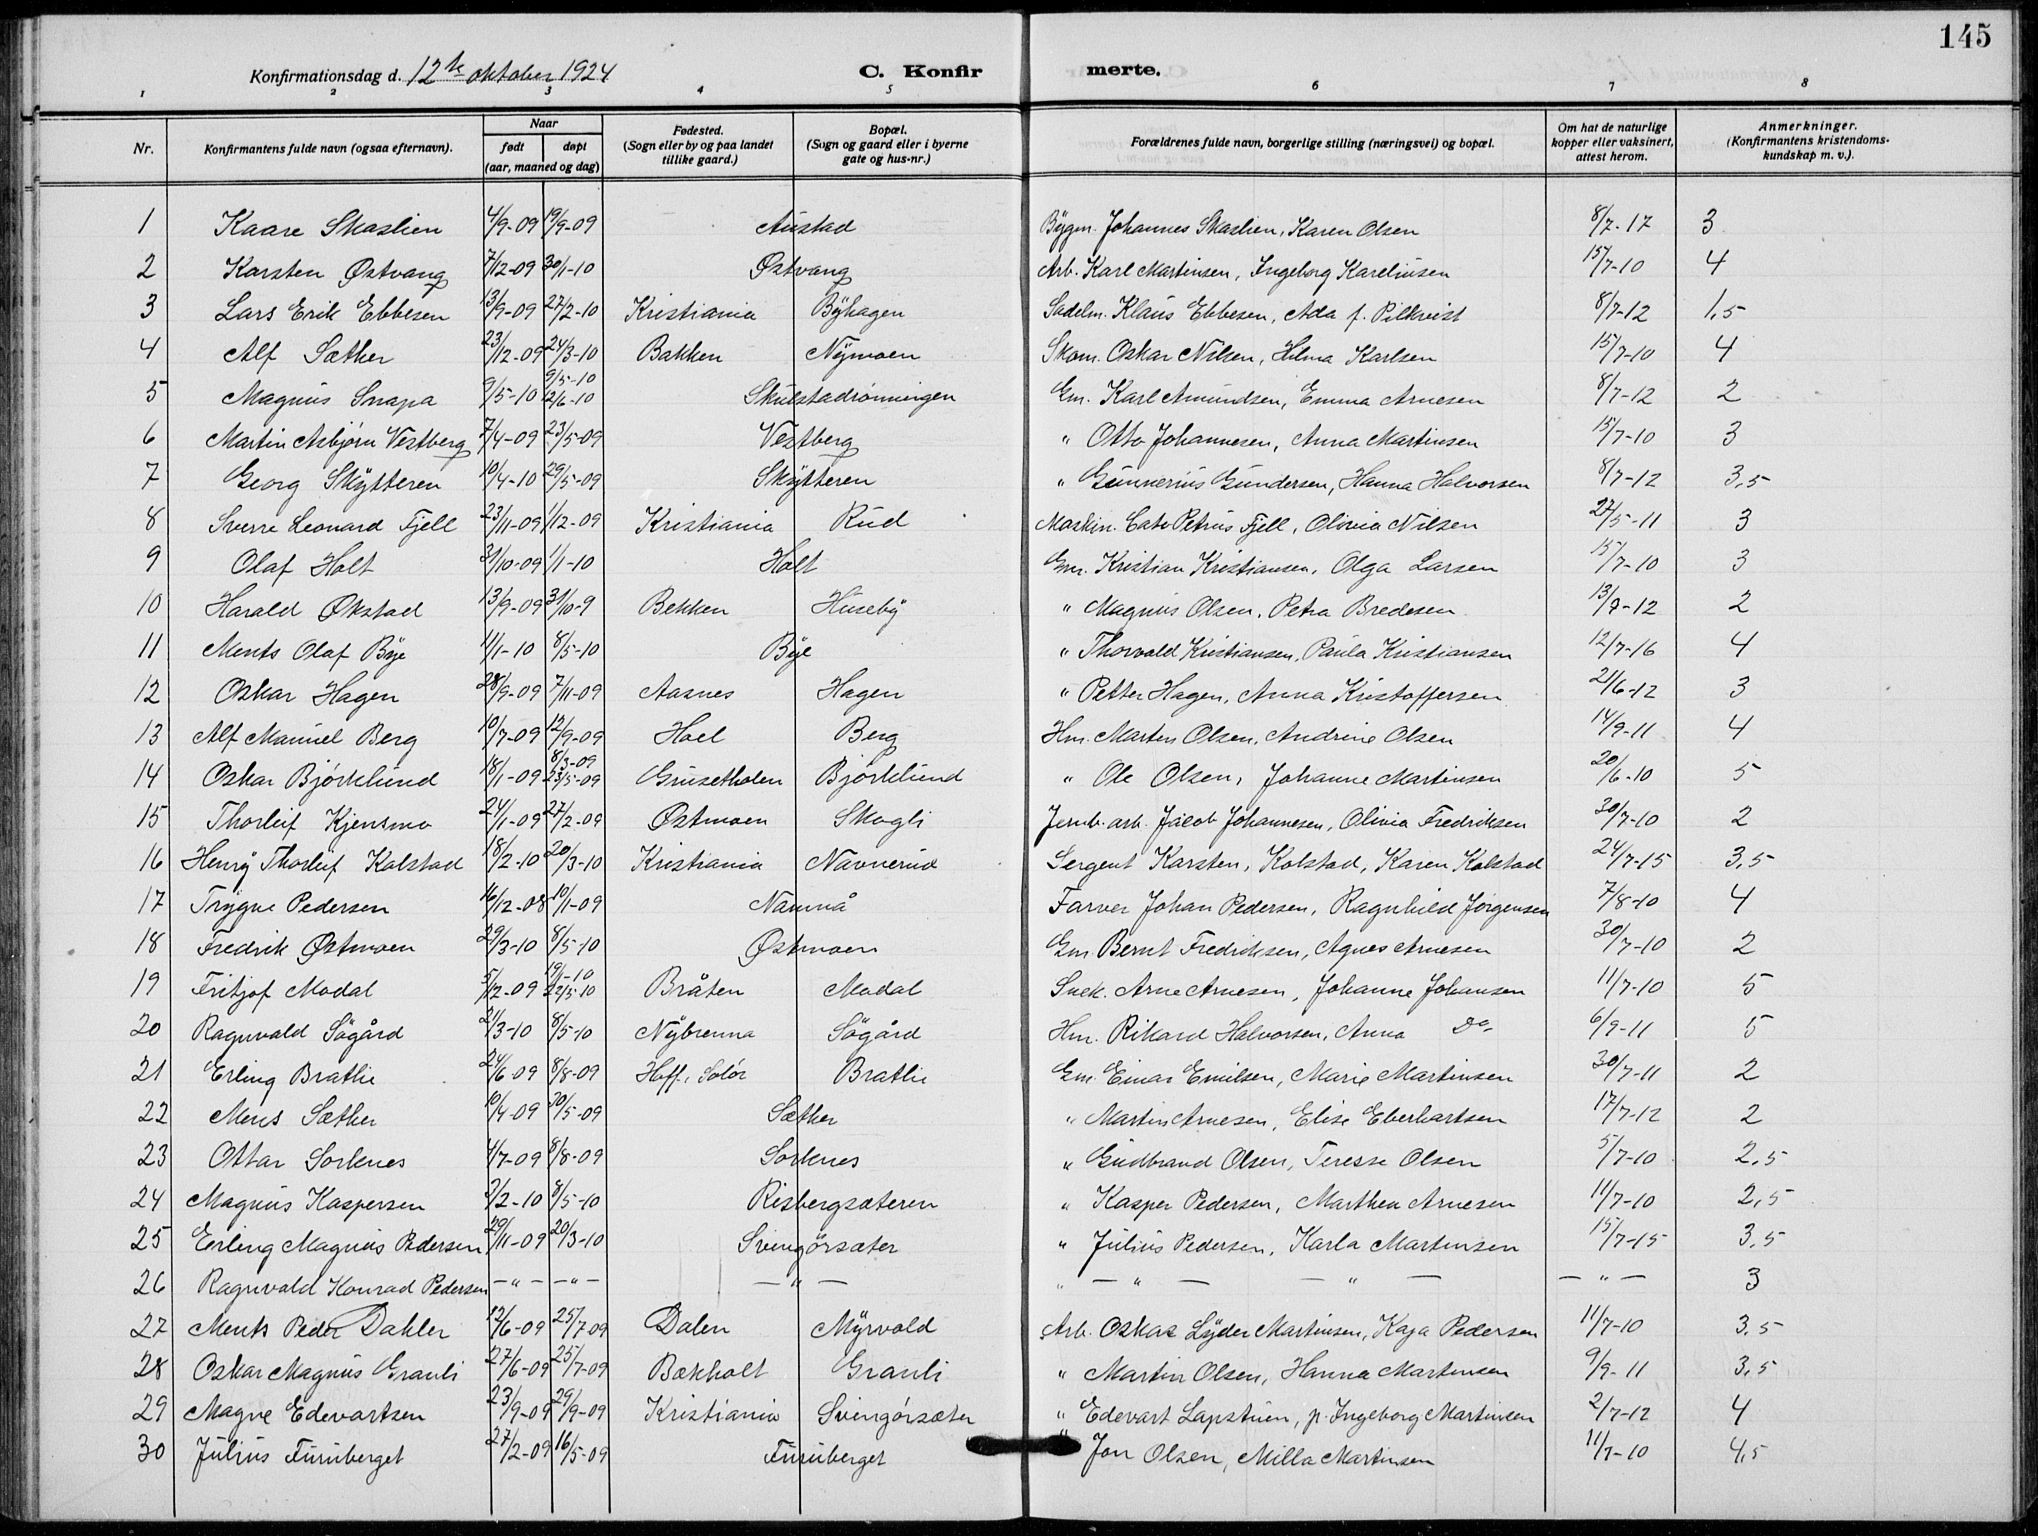 145
Konfirmationsdag d. 12te oktober 1924 C. Konfir merte.
1 2 3 4 5 6 7 8
Nr. Konfirmantens fulde navn (ogsaa efternavn). Naar født døpt (aar, maaned og dag) Fødested. (Sogn eller by og paa landet tillike gaard.) Bopæl. (Sogn og gaard eller i byerne gate og hus-nr.) Forældrenes fulde navn, borgerlige stilling (næringsvei) og bopæl. Om hat de naturlige kopper eller vaksinert, attest herom. Anmerkninger. (Konfirmantens kristendoms-kundskap m. v.).
1 Kaare Skaslien 4/9-09 19/9-09 Austad Bygm. Johannes Skaslien, Karen Olsen 8/7-17 3
2 Karsten Østvang 7/12-09 30/1-10 Østvang Arb. Karl Martinsen, Ingeborg Kareliusen 15/7-10 4
3 Lars Erik Ebbesen 13/9-09 27/2-10 Kristiania Byhagen Sadelm. Klaus Ebbesen, Ada f. Pilkvist 8/7-12 1,5
4 Alf Sæther 23/12-09 24/3-10 Bakken Nymoen Skom. Oskar Nilsen, Hilma Karlsen 15/7-10 4
5 Magnus Snapa 9/5-10 9/5-10 12/6-10 Skulstadrønningen Gm. Karl Amundsen, Emma Arnesen 8/7-12 2
6 Martin Asbjørn Vestberg 7/4-09 23/5-09 Vestberg " Otto Johannesen, Anna Martinsen 15/7-10 3
7 Georg Skytteren 10/4-10 29/5-09 Skytteren " Gunnerius Gundersen, Hanna Halvorsen 8/7-12 3,5
8 Sverre Leonard Fjell 23/11-09 1/12-09 Kristiania Rud Maskin. Cato Petrus Fjell, Olivia Nilsen 27/5-11 3
9 Olaf Holt 31/10-09 1/1-10 Holt Gm. Kristian Kristiansen, Olga Larsen 15/7-10 3
10 Harald Økstad 13/9-09 31/10-9 Bekken Huseby " Magnus Olsen, Petra Bredesen 13/9-12 2
11 Ments Olaf Bye 11/1-10 8/5-10 Bye " Thorvald Kristiansen, Paula Kristiansen 12/7-16 4
12 Oskar Hagen 28/9-09 7/11-09 Aasnes Hagen " Petter Hagen, Anna Kristoffersen 21/6-12 3
13 Alf Manuel Berg 10/7-09 12/9-09 Hoel Berg Hm. Marten Olsen, Andrine Olsen 14/9-11 4
14 Oskar Bjørklund 18/1-09 8/3-09 23/5-09 Grusetholen Bjørklund " Ole Olsen, Johanne Martinsen 20/6-10 5
15 Thorleif Kjensmo 24/1-09 27/2-09 Østmoen Skogli Jernb. arb. Jacob Johannesen, Olivia Fredriksen 30/7-10 2
16 Henry Thorleif Kolstad 18/2-10 20/3-10 Kristiania Navnerud Sergent Karsten, Kolstad, Karen Kolstad 24/7-15 3,5
17 Trygve Pedersen 16/12-08 10/1-09 Namnå Farver Johan Pedersen, Ragnhild Jørgensen 7/8-10 4
18 Fredrik Østmoen 29/3-10 8/5-10 Østmoen Gm. Bernt Fredriksen, Agnes Arnesen 30/7-10 2
19 Fritjof Modal 5/12-09 19/1-10 22/5-10 Bråten Modal Snek. Arne Arnesen, Johanne Johansen 11/7-10 5
20 Ragnvald Søgård 21/3-10 8/5-10 Nybrenna Søgård Hm. Rikard Halvorsen, Anna Do 6/9-11 5
21 Erling Brathe 24/6-09 8/8-09 Hoff, Solør Brathe Gm. Einar Emilsen, Marie Martinsen 30/7-11 2
22 Mens Sæther 10/4-09 30/5-09 Sæther " Martin Arnesen, Elise Eberhartsen 17/7-12 2
23 Ottar Sorknes 4/7-09 8/8-09 Sorknes " Gudbrand Olsen, Terese Olsen 5/7-10 2,5
24 Magnus Kaspersen 3/2-10 8/5-10 Risbergsæteren " Kasper Pedersen, Marthea Arnesen 11/7-10 2,5
25 Erling Magnus Pedersen 29/11-09 20/3-10 Svingørsæter " Julius Pedersen, Karla Martinsen 15/7-15 3,5
26 Ragnvald Konrad Pedersen — " — — " — — " — " — " — — " — — " — 3
27 Ments Peder Dahler 12/6-09 25/7-09 Dalen Myrvold Arb. Oskar Lyder Martinsen, Kaja Pedersen 11/7-10 3,5
28 Oskar Magnus Granli 27/6-09 25/7-09 Bækholt Granli " Martin Olsen, Hanna Martinsen 9/9-11 3,5
29 Magne Edevartsen 23/9-09 29/9-09 Kristiania Svingørsæter " Edevart Lapstuen, p. Ingeborg Martinsen 2/7-12 4
30 Julius Furuberget 27/2-09 16/5-09 Furuberget " Jon Olsen, Milla Martinsen 11/7-10 4,5